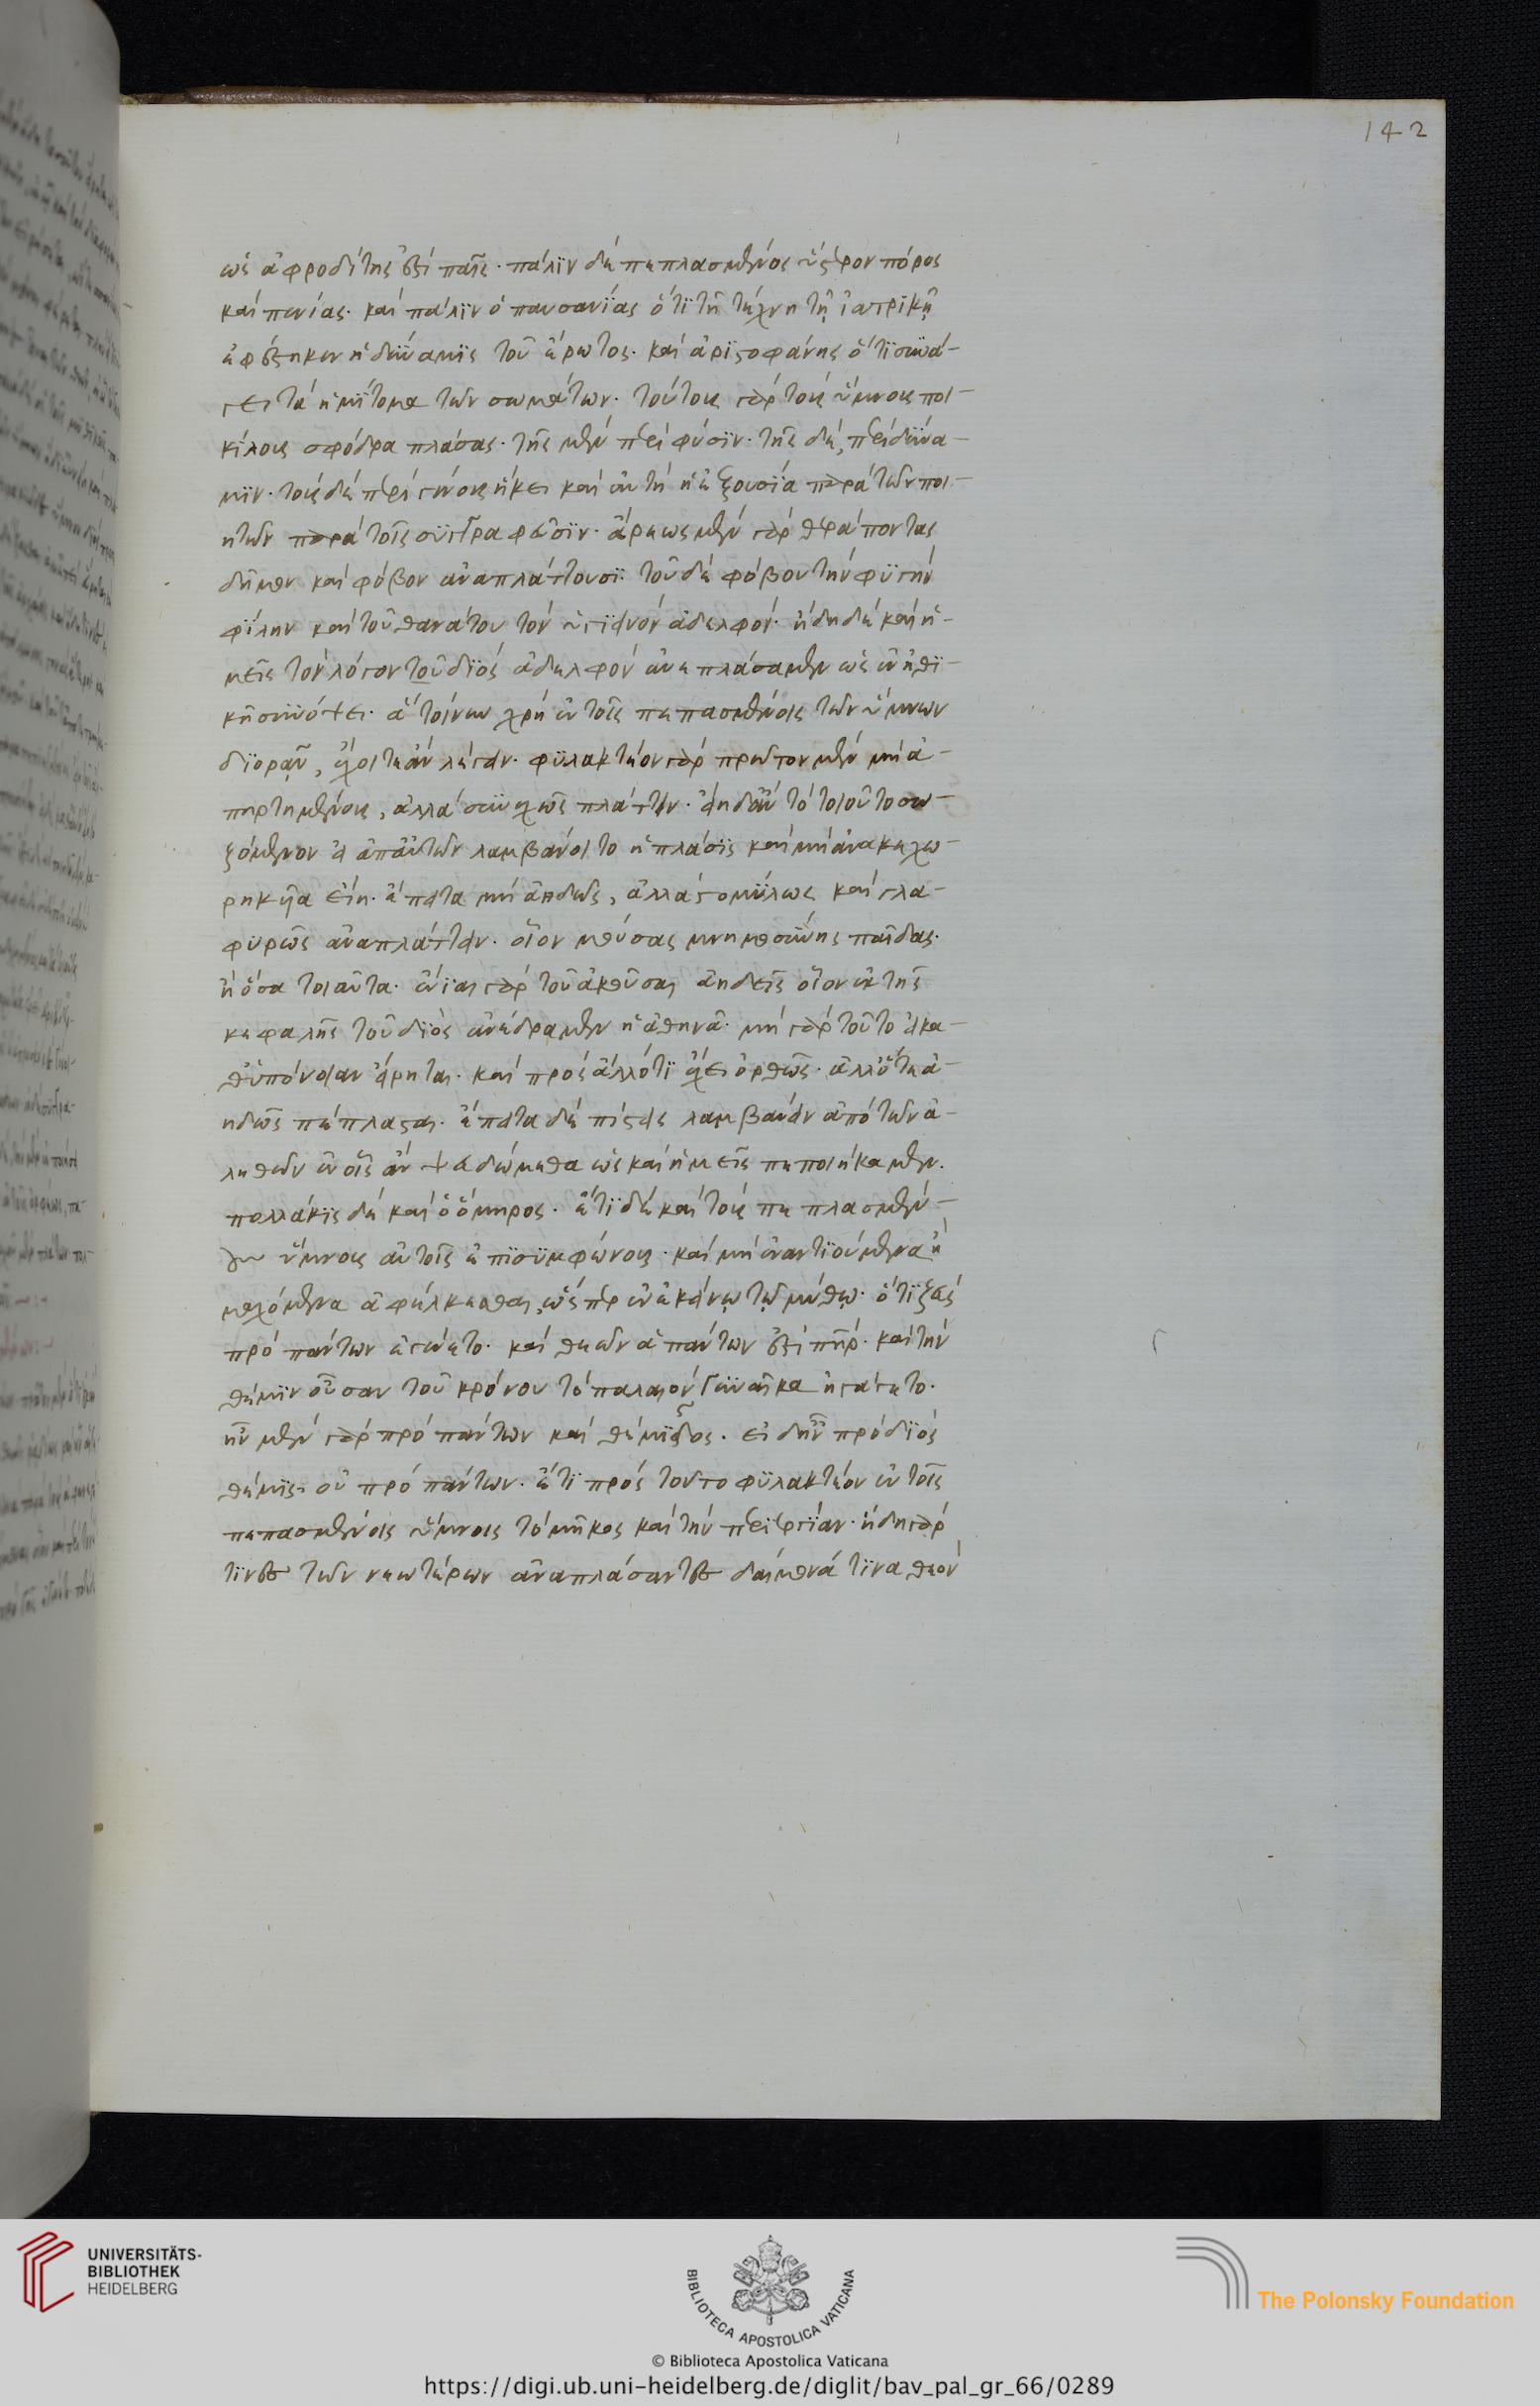 142
ὡς ἀφροδίτης ἐστὶ παῖς· πάλϊν δὲ πεπλασμένος ὕστερον πόρος
καὶ πενίας· καὶ πάλϊν ὁ παυσανίας ὅτϊ τῆ τέχνη τῇ ἰατρικῇ
ἐφέστηκεν ἡ δύναμϊς τοῦ ἔρωτος· καὶ ἀρϊστοφάνης ὅτϊ συνά-
γει τὰ ἡμίτομα τῶν σωμάτων· τούτους γὰρ τοὺς ὕμνους ποι-
κίλους σφόδρα πλάσας· τῆς μὲν περὶ φύσϊν· τῆς δὲ, περὶ δύνα-
μϊν· τοὺς δὲ περὶ γένους ἥκει καὶ αὐτὴ ἡ ἐξουσία παρὰ τῶν ποι-
ητῶν παρὰ τοῖς συγγραφεῦσϊν· ἄρεως μὲν γὰρ θεράποντας
δεῖμον καὶ φόβον ἀναπλάττουσϊ· τοῦ δὲ φόβου τὴν φϋγὴν
φίλην καὶ τοῦ θανάτου τὸν ὑγϊεινὸν ἀδελφόν· ἤδη δὲ καὶ ἡ-
μεῖς τὸν λόγον τοῦ διὸς ἀδελφὸν ἀνεπλάσαμεν ὡς ἐν ἠθϊ-
κῆ συνόψει· ἃ τοίνυν χρὴ ἐν τοῖς πεπασμένοις τῶν ὕμνων
διορᾷν, ἔχοιτε ἂν λέγειν· φϋλακτέον γὰρ πρῶτον μὲν μὴ ἀ-
πηρτημένους, ἀλλὰ συνεχῶς πλάττειν· εἴη δἂν τὸ τοιοῦτο σω-
ζόμενον εἰ ἀπ αὐτῶν λαμβάνοιτο ἡ πλάσϊς καὶ μὴ ἀνακεχω-
ρηκῆα εἴη· ἔπειτα μὴ ἀηδῶς, ἀλλὰ στομύλως καὶ γλα-
φϋρῶς ἀναπλάττειν· οἷον μούσας μνημοσύνης παῖδας·
ἢ ὅσα τοιαῦτα· ἔνϊαι γὰρ τοῦ ἀκοῦσαι ἀηδεῖς οἷον ἐκ τῆς
κεφαλῆς τοῦ διὸς ἀνέδραμεν ἡ ἀθηνᾶ· μὴ γὰρ τοῦτο εἰ κα-
θ' ὑπόνοιαν εἴρηται· καὶ πρὸς ἄλλό τϊ ἔχει ὀρθῶς· ἀλλ' ὅτε ἀ-
ηδῶς πέπλασται· ἔπειτα δὲ πίστεις λαμβάνειν ἀπὸ τῶν ἀ-
ληθῶν ἐν οἷς ἂν ψευδώμεθα ὡς καὶ ἡμεῖς πεποιήκαμεν.
πολλάκϊς δὲ καὶ ὁ ὅμηρος· ἔτϊ δὲ καὶ τοὺς πεπλασμέν-
ους ὕμνους αὐτοῖς ἐπϊσϋμφώνους· καὶ μὴ ἐναντϊούμενα ἢ
μαχόμενα ἀφέλκεσθαι, ὥσπερ ἐν ἐκείνῳ τῷ μύθῳ· ὅτϊ ζεὺς
πρὸ πάντων ἐγένετο· καὶ θεῶν ἁπάντων ἐστὶ πῆρ· καὶ τὴν
θέμϊν οὖσαν τοῦ κρόνου τὸ παλαιὸν γυναῖκα ἠγάγετο·
ἦν μὲν γὰρ πρὸ πάντων καὶ θέμϊδος· εἰ δἦν πρὸ διὸς
θέμϊς· οὐ πρὸ πάντων· ἔτϊ πρὸς τοῦτο φϋλακτέον ἐν τοῖς
πεπασμένοις ὕμνοις τὸ μῆκος καὶ τὴν περϊεργίαν· ἤδη γὰρ
τϊνες τῶν νεωτέρων ἀναπλάσαντες δαίμονά τϊνα θεὸν
UNIVERSITÄTS-
BIBLIOTHEK
HEIDELBERG
BIBLIOTECA APOSTOLICA VATICANA
The Polonsky Foundation
© Biblioteca Apostolica Vaticana
https://digi.ub.uni-heidelberg.de/diglit/bav_pal_gr_66/0289